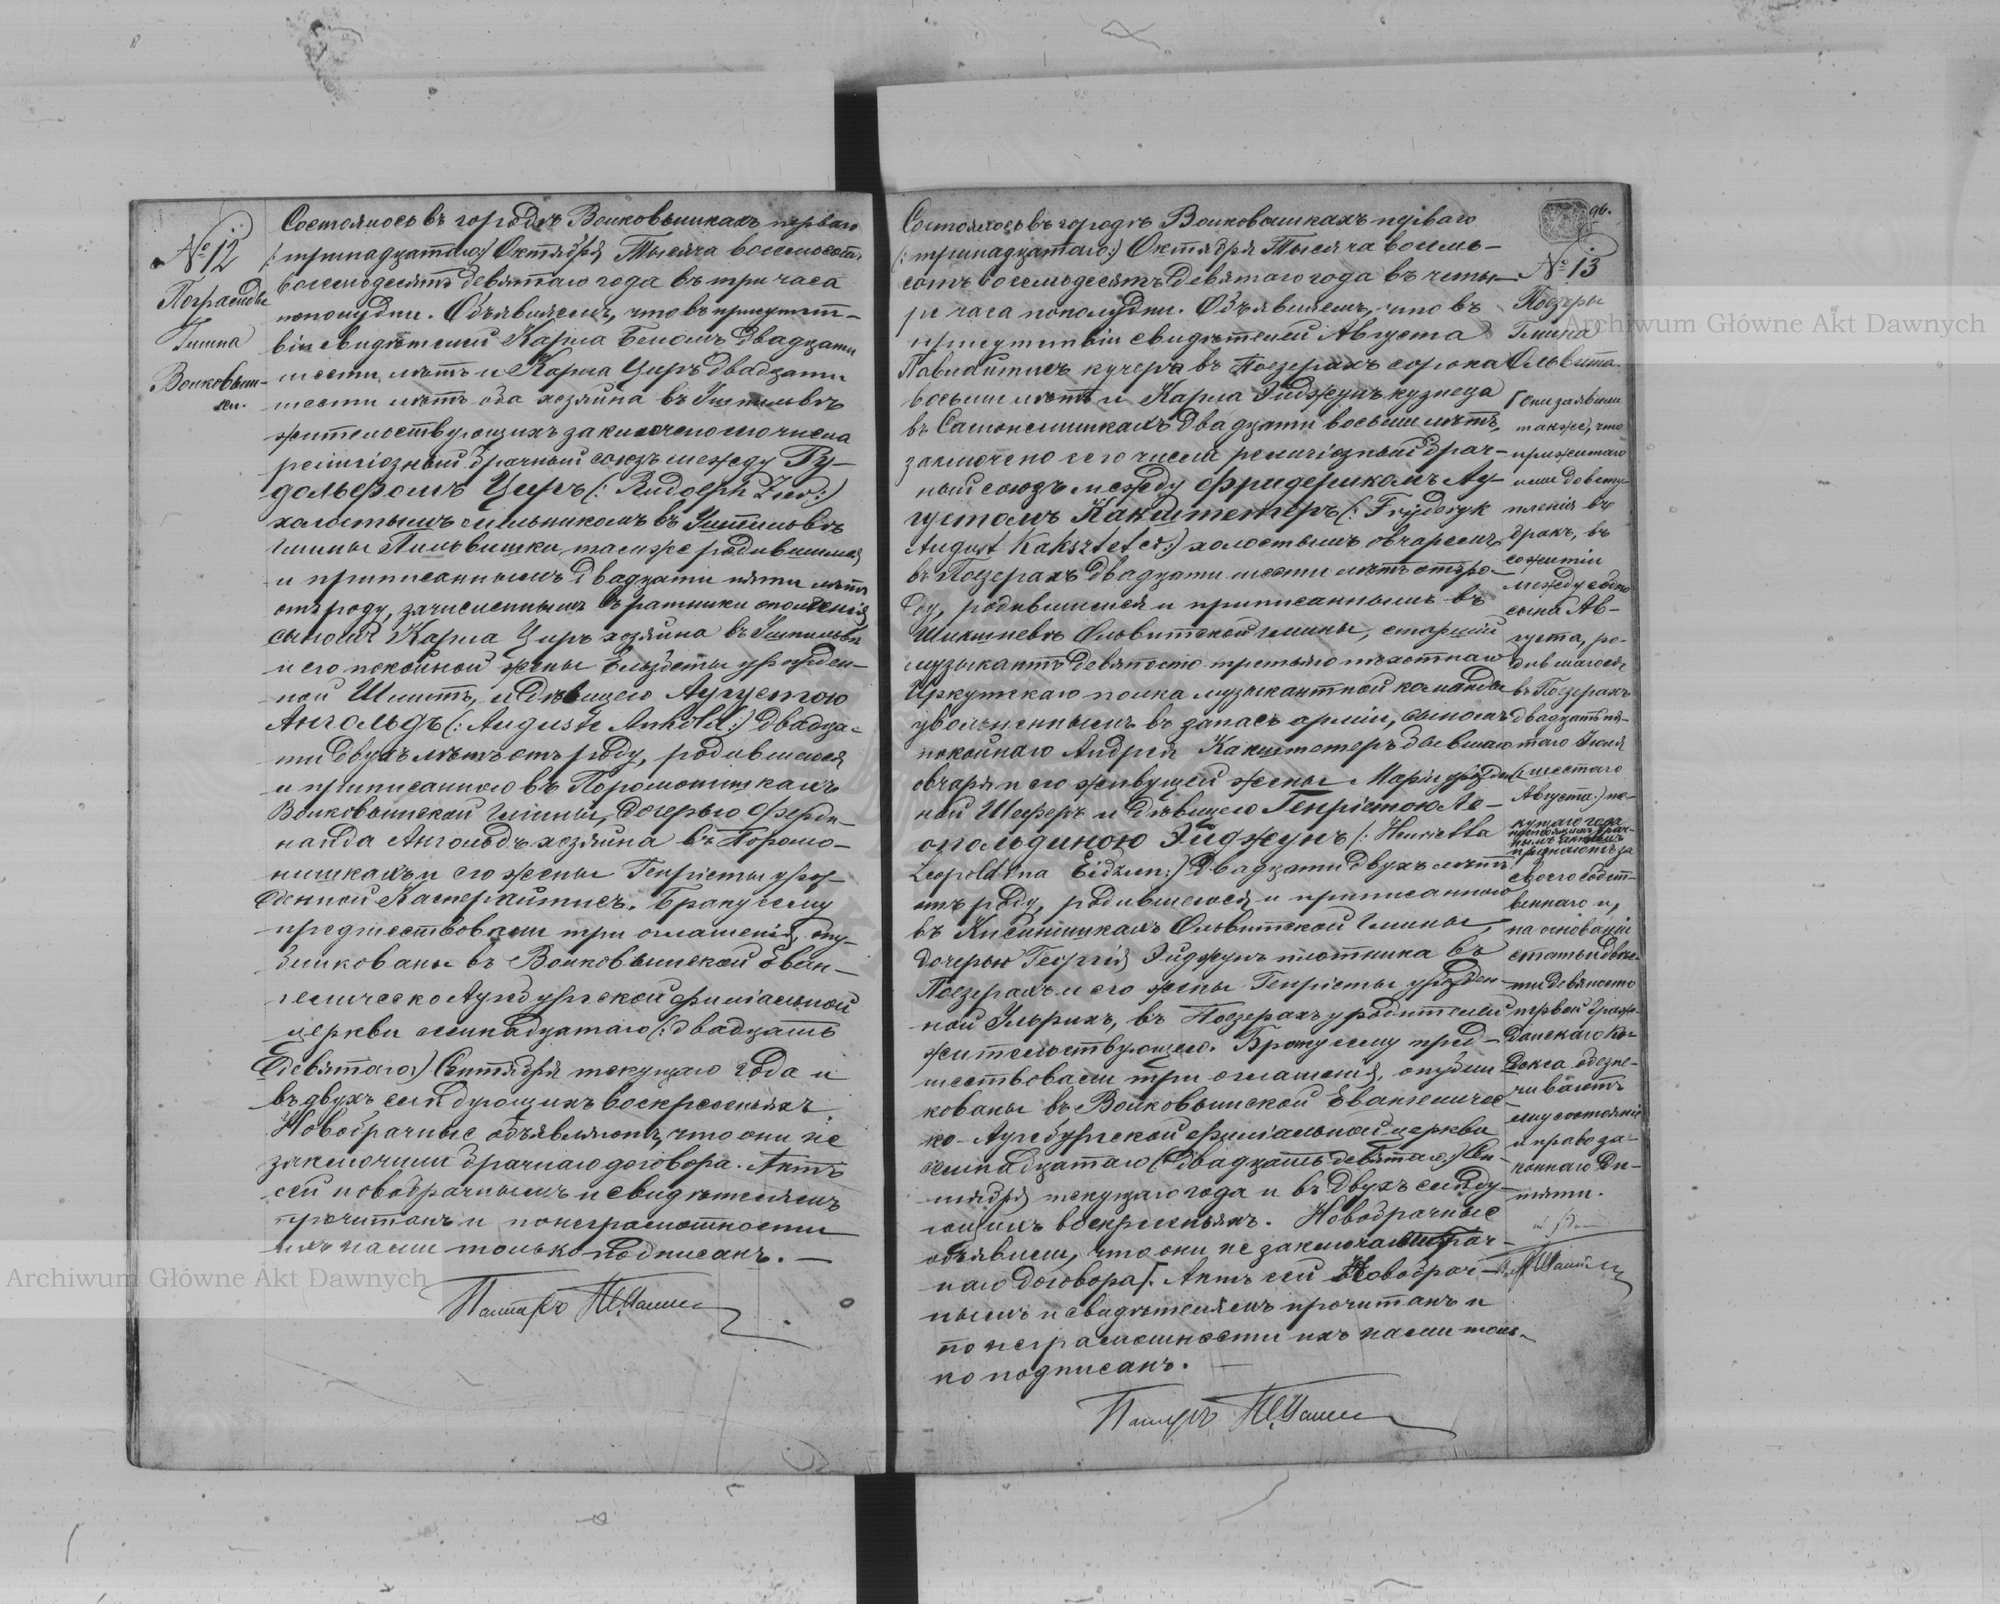 № 12
Гмина
Состоялось въ городѣ Волковышкахъ перваго
(:тринадцатаго:) Октября Тысяча восемьсотъ
восемьдесятъ девятаго года въ три часа
пополудни. Объявляемъ, что въ присутст-
віи свидѣтелей Карла двадцати
шести лѣтъ и Карла Циръ двадцати
шести лѣтъ оба хозяина въ
жительствующихъ заключено сего числа
религіозный брачный союзъ между Ру-
дольфомъ Циръ (: Rudolph :)
холостымъ мельникомъ въ
гмины Пильвишки, тамже родившимся
и приписаннымъ двадцати пяти лѣтъ
отъ роду, зачисленнымъ въ ратники ополченія
сыномъ Карла Циръ хозяина въ
и его покойной жены Ельзбеты урожден-
ной Шмитъ, и дѣвицею Августою
Ангольдъ (: Auguste Anhold :) двадца-
ти двухъ лѣтъ отъ роду, родившеюся
и приписанною въ
Волковышской гмины, дочерью Ферди-
нанда Ангольдъ хозяина въ
и его жены Генріеты урож-
денной Браку сему
предшествовали три оглашенія, опу-
бликованы въ Волковышской Еван-
гелическо Аугсбургской филіальной
церкви семнадцатаго (: двадцать
девятаго:) Сентября текущаго года и
въ двухъ слѣдующихъ воскресеньяхъ.
Новобрачные объявляютъ, что они не
заключили брачнаго договора. Актъ
сей новобрачнымъ и свидѣтелямъ
прочитанъ и по неграмотности
ихъ нами только подписанъ. —
Пасторъ
96.
№ 13
Поезеры
Гмина
Ольвита
Состоялось въ городѣ Волковышкахъ перваго
(: тринадцатаго:) Октября Тысяча восемь-
сотъ восемьдесятъ девятаго года въ четы-
ре часа пополудни. Объявляемъ, что въ
присутствіи свидѣтелей Августа
кучера въ Поезерахъ сорока
восьми лѣтъ и Карла Эйджунъ кузнеца
въ двадцати восьми лѣтъ,
заключено сего числа религіозный брач-
ный союзъ между Фридерикомъ Ав-
густомъ Какштетеръ (: Fryderyk
August Saksztet :) холостымъ овчаремъ
въ Поезерахъ двадцати шести лѣтъ отъ ро-
ду, родившимся и приписаннымъ въ
Ольвитской гмины, старшій
музыкантъ девяносто третьяго пѣхотнаго
Иркутскаго полка музыкантной команды
уволеннымъ въ запасъ арміи, сыномъ
покойнаго Андрея Какштетеръ бывшаго
овчаря и его живущей жены Маріи урожден-
ной Шеферъ и дѣвицею Генріетою Ле-
опольдиною Эйджунъ (: Henrietta
Leopoldina :) двадцати двухъ лѣтъ
отъ роду, родившеюся и приписанною
въ Ольвитской гмины,
дочерью Георгія Эйджунъ плотника въ
Поезерахъ и его жены Генріеты урожден-
ной Ульрихъ, въ Поезерахъ у родителей
жительствующею. Браку сему пред-
шествовали три оглашенія, опубли-
кованы въ Волковышской Евангеличес-
ко-Аугсбургской филіальной церкви
семнадцатаго (: двадцать девятаго:) Сен-
тября текущаго года и въ двухъ слѣду-
ющихъ воскресеньяхъ. Новобрачные
объявили, что они не заключали брач-
наго договора. Актъ сей Новобрач-
нымъ и свидѣтелямъ прочитанъ и
по неграмотности ихъ нами толь-
ко подписанъ. —
Пасторъ
Они заявили
также, что
прижитаго
ими до всту-
пленія въ
бракъ, въ
сожитіи
между собою
сына Ав-
густа, ро-
дившагося
въ Поезерахъ
двадцать пя-
таго Іюля
(: шестаго
Августа:) те-
кущаго года
настоящимъ брач-
нымъ актомъ
признаютъ за
своего собст-
веннаго и,
на основаніи
статьи двѣс-
ти девяносто
первой Граж-
данскаго Ко-
декса обезпе-
чиваютъ
ему состояніе
и право за-
коннаго ди-
тяти.
Archiwum Główne Akt Dawnych
Archiwum Główne Akt Dawnych